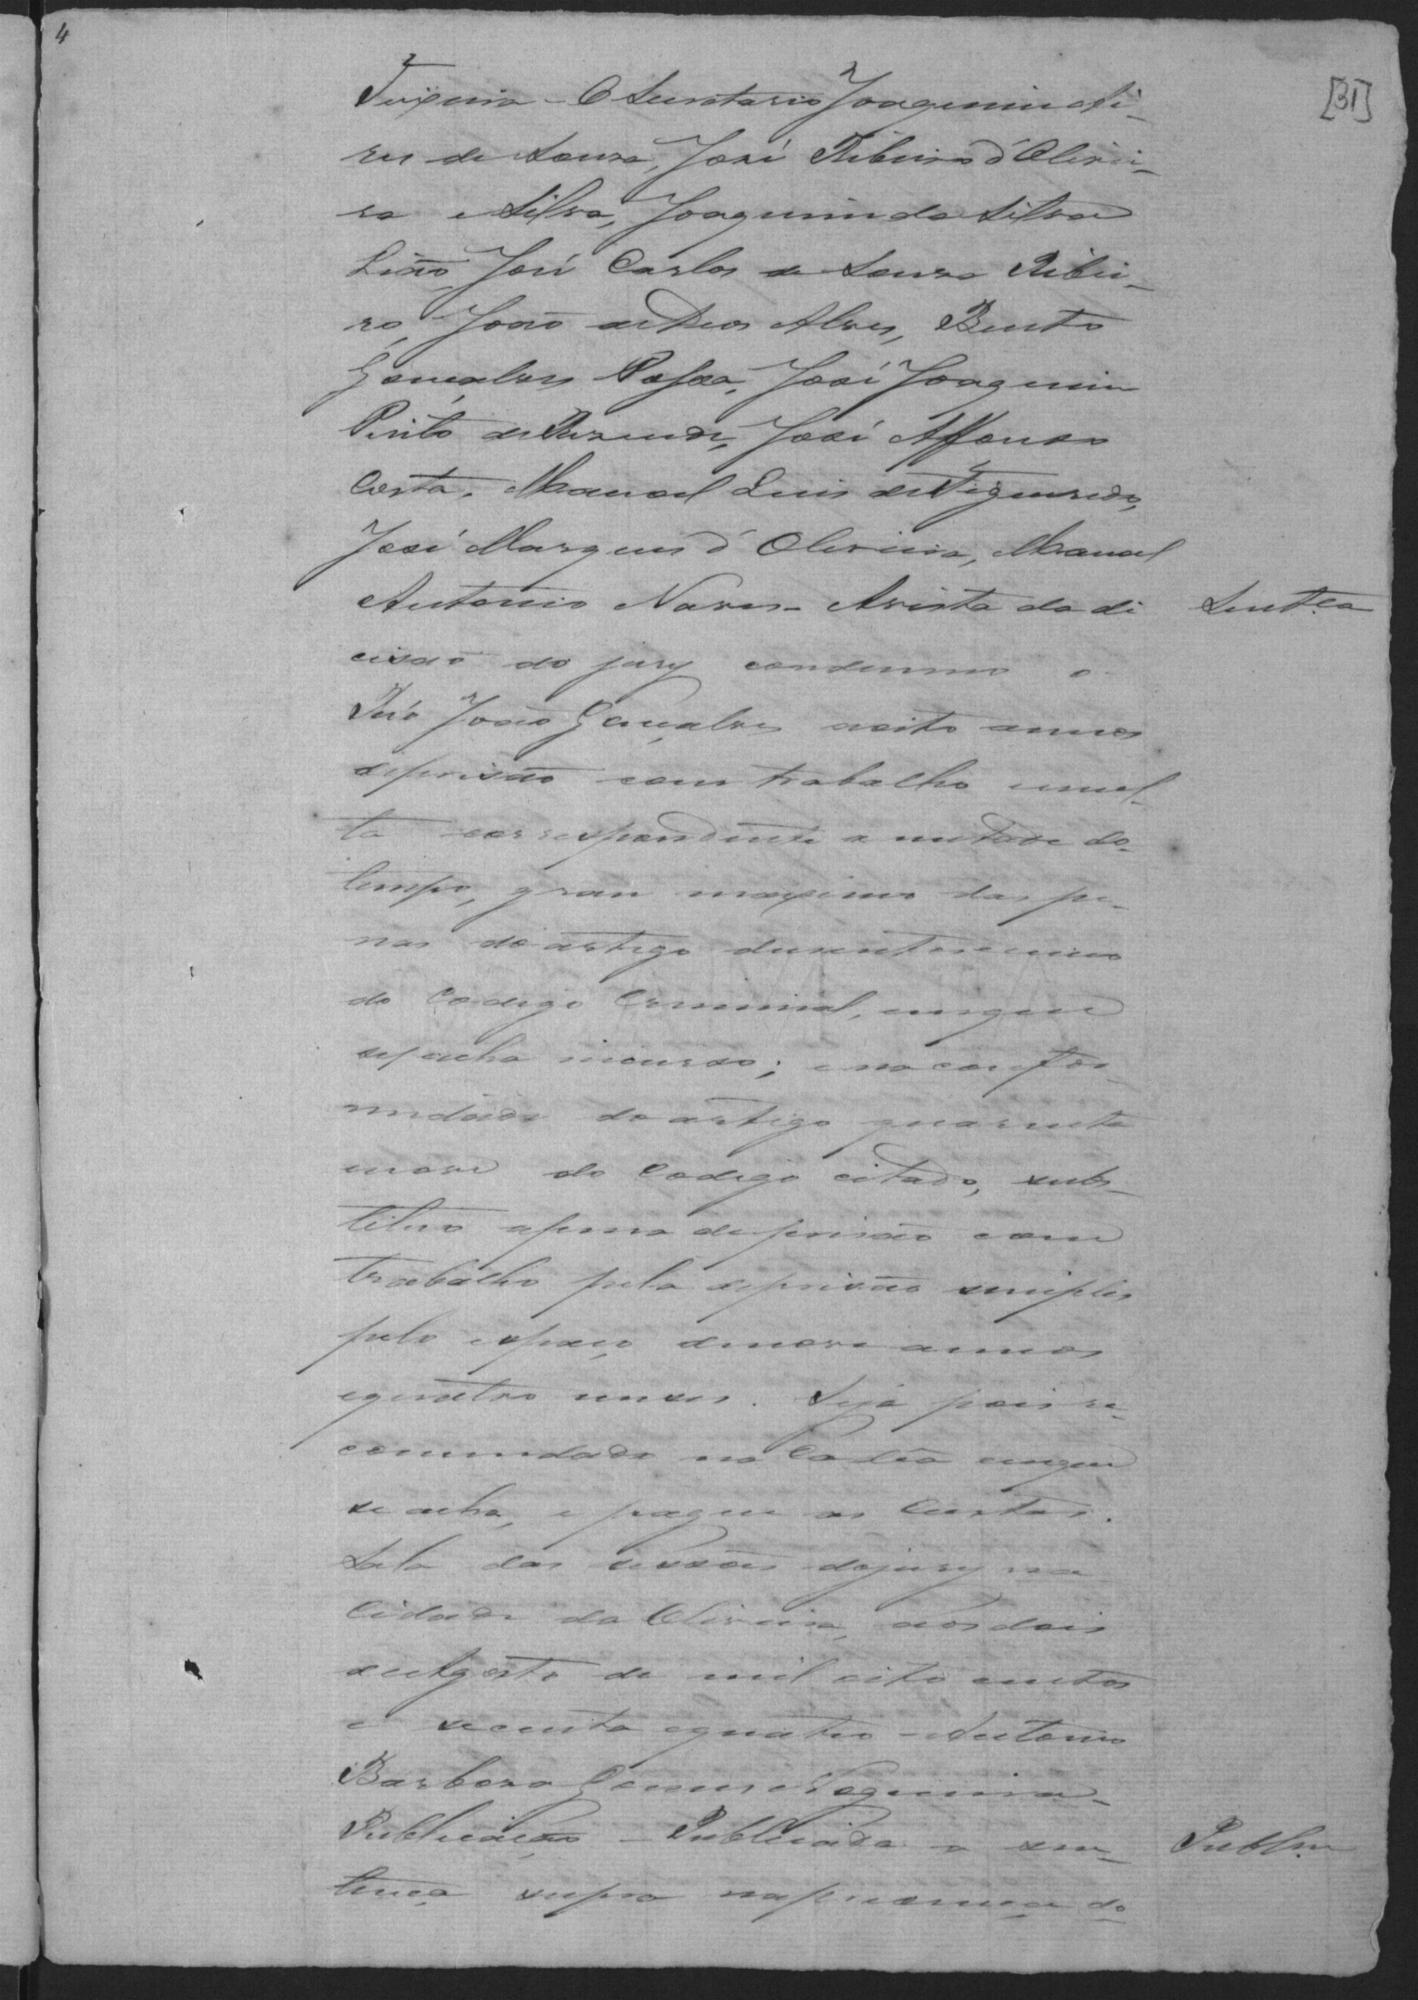 4
[31]
Teixeira - O Secretario Joaquim Ri-
res de Souza, José Ribeiro d'Olivei-
ra e Silva, Joaquim da Silva
Leão, José Carlos de Souza Ribei-
ro, João de Deos Alves, Bento
Gonçalves José Joaquim
Pinto de Rezende, José Affonso
Costa, Manoel Luis de Figueiredo,
José Marques d'Oliveira, Manoel
Antonio Naves - Avista da di
Sentça
cisão do jury condemno o
Réo João Gonçalves aoito annos
deprisão com trabalho emul-
ta correspondente a metade do
tempo, grau maximo das pe-
nas do artigo dusentos e um
do Codigo Criminal, emque
se acha incurso; e na confor-
midade do artigo quarenta
enove do Codigo citado, subs-
tituo apena de prisão com
trabalho pela deprisão simples
pelo espaço denove annos
equatro meses. Seja pois re-
commendado na Cadêa emque
se acha, e pague as Custas.
Sala das sessões dojury na
Cidade da Oliveira, aos dois
de Agosto de mil oito centos
e secenta equatro - Antonio
Barbosa Gomes Nogueira -
Publicação - Publicada a sen-
Publm
tença supra napresença do